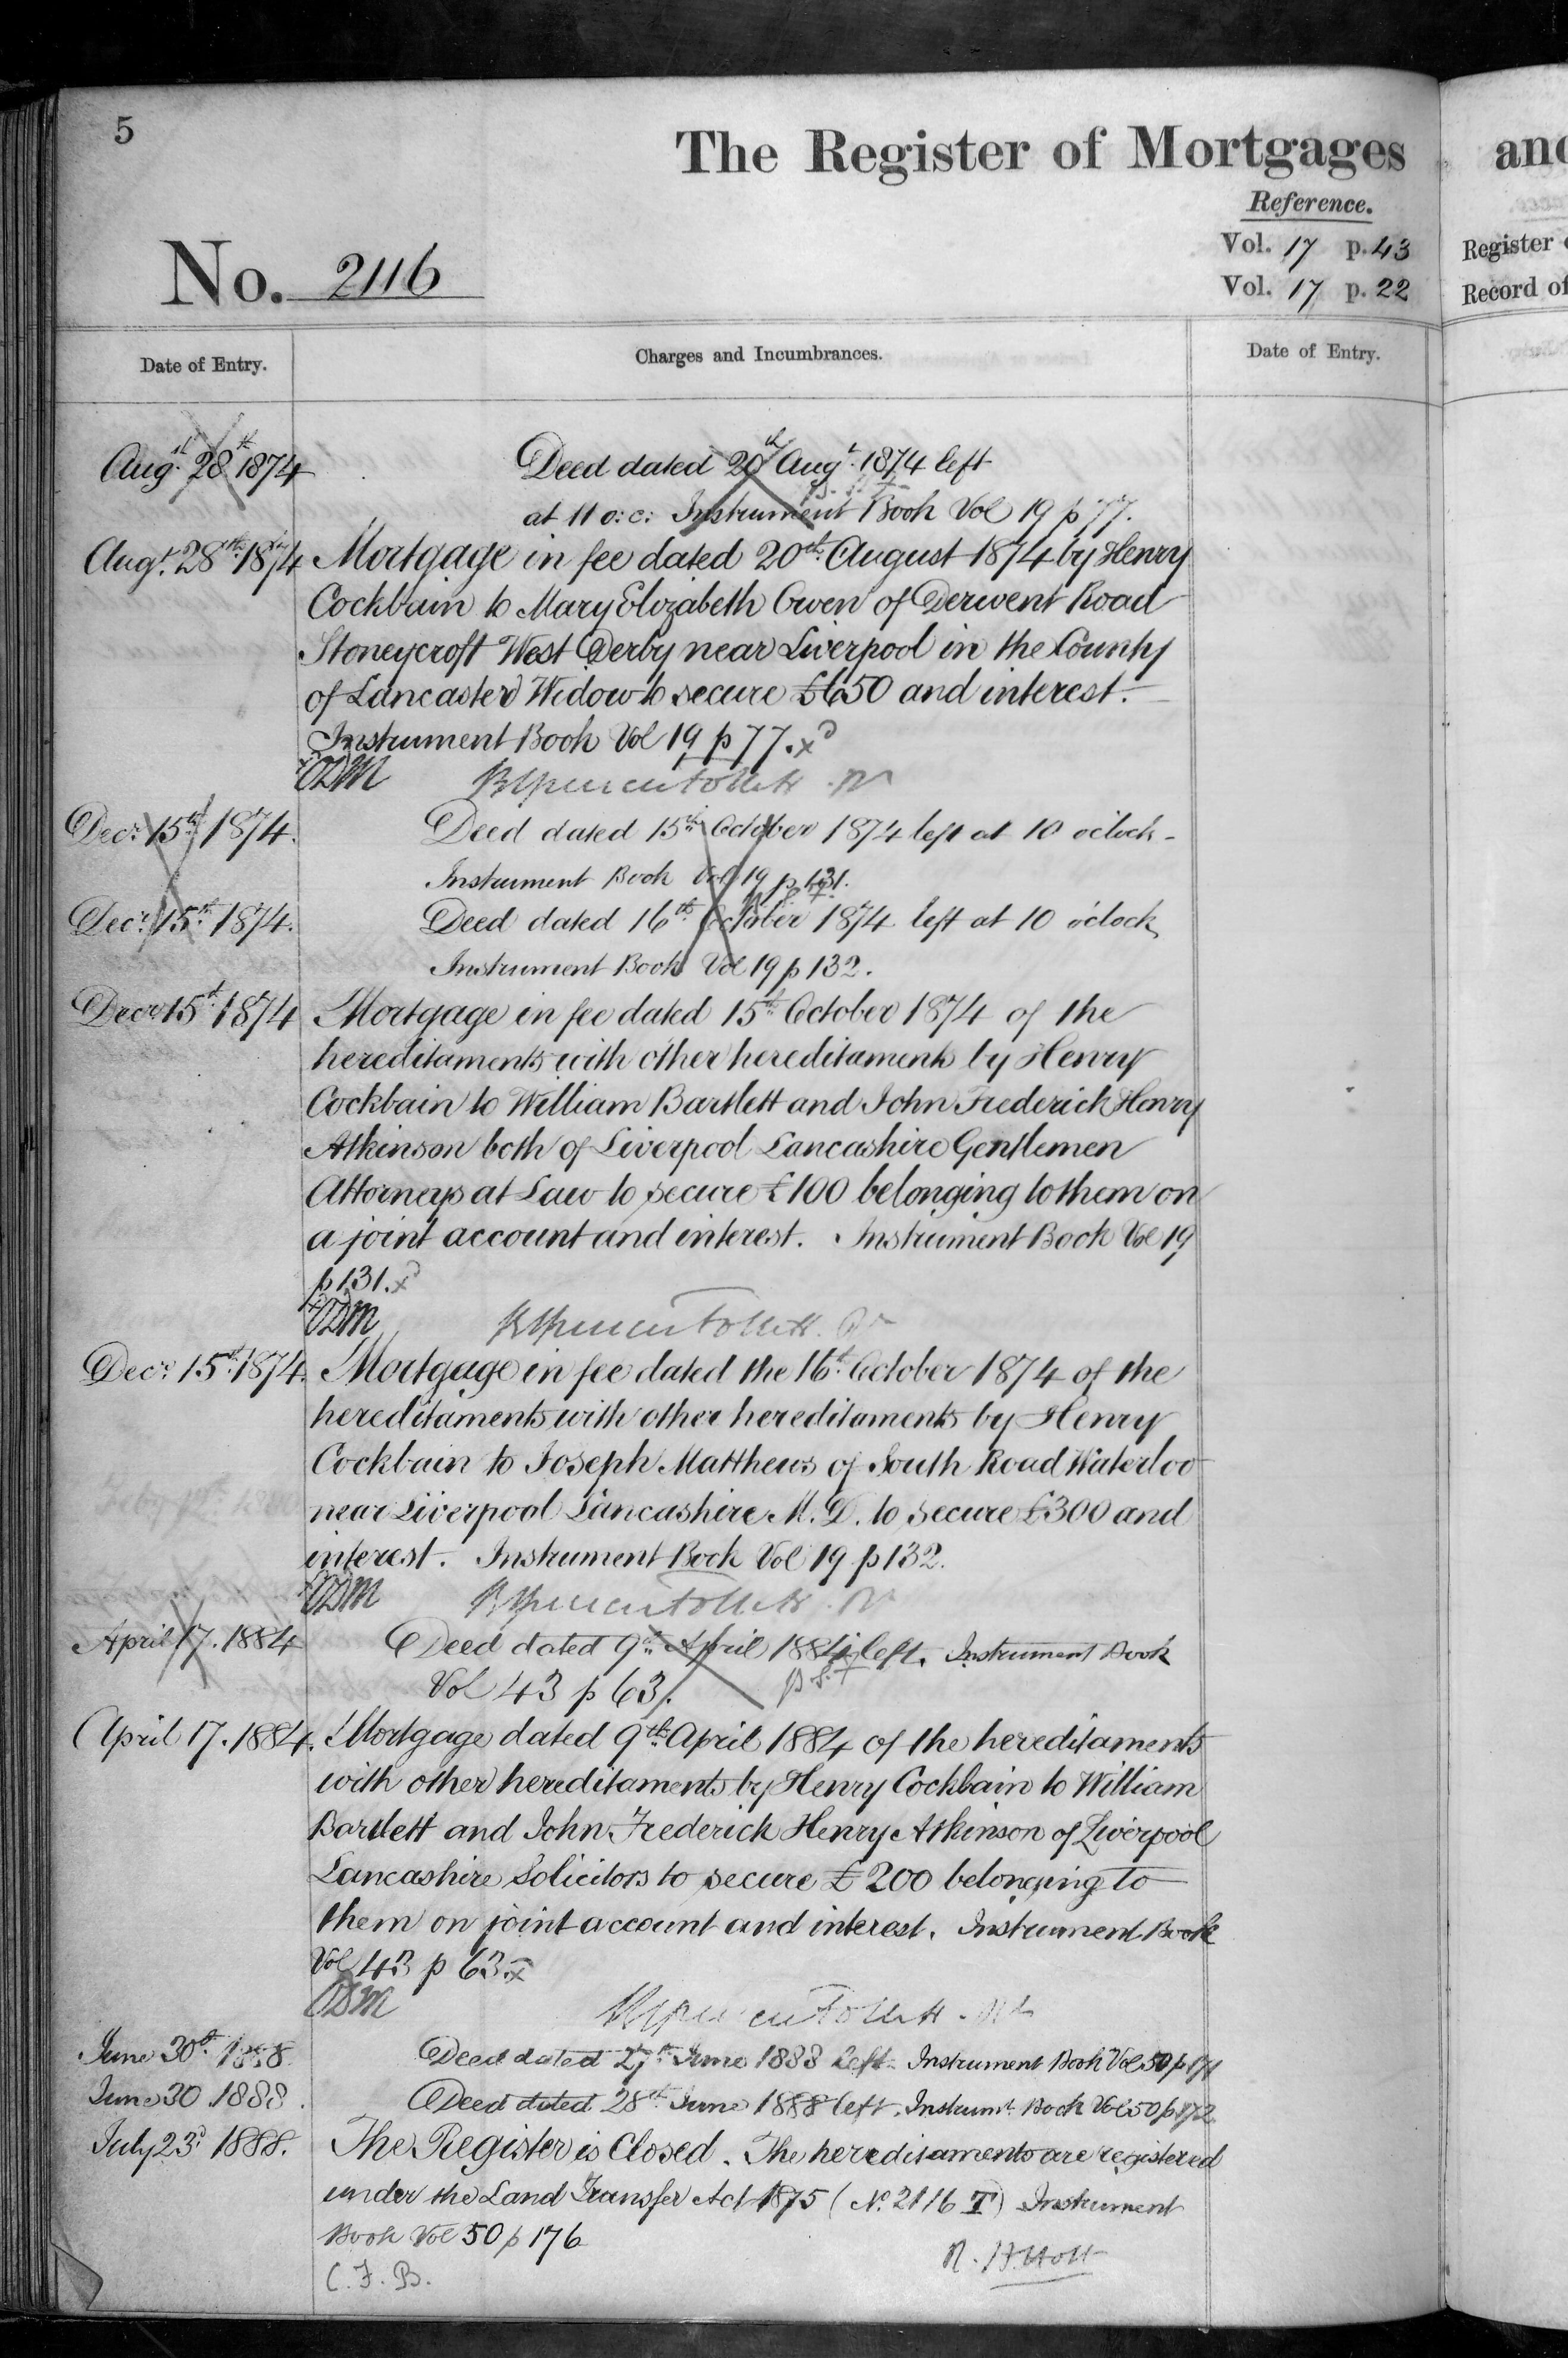 5
The Register of Mortgages
and
Reference.
Vol. 17 p. 43
Register
Vol. 17 p. 22
Record of
No. 2116
Date of Entry.
Charges and Incumbrances.
Date of Entry.
Augst. 28th 1874
Deed dated 20th Augt. 1874 left
at 11 o:c: Instrument Book Vol 19 p 77.
Augt. 28th 1874
Mortgage in fee dated 20th August 1874 by Henry
Cockbain to Mary Elizabeth Owen of Derwent Road
Stoneycroft West Derby near Liverpool in the County
of Lancaster Widow to secure £650 and interest.
Instrument Book Vol 19 p 77. x
ODM
Decr. 15th 1874.
Deed dated 15th October 1874 left at 10 o'clock -
Instrument Book Vol 19 p 131.
Decr. 15th 1874.
Deed dated 16th October 1874 left at 10 o'clock
Instrument Book Vol 19 p 132.
Decr 15th 1874
Mortgage in fee dated 15th October 1874 of the
hereditaments with other hereditaments by Henry
Cockbain to William Bartlett and John Frederick Henry
Atkinson both of Liverpool Lancashire Gentlemen
Attorneys at Law to secure £100 belonging to them on
a joint account and interest. Instrument Book Vol 19
p 131. x
ODM
Decr. 15th 1874.
Mortgage in fee dated the 16th October 1874 of the
hereditaments with other hereditaments by Henry
Cockbain to Joseph Matthews of South Road Waterloo
near Liverpool Lancashire M.D. to secure £300 and
interest. Instrument Book Vol 19 p 132.
ODM
April 17. 1884
Deed dated 9th April 1884 left. Instrument Book
Vol 43 p 63.
April 17. 1884.
Mortgage dated 9th April 1884 of the hereditaments
with other hereditaments by Henry Cockbain to William
Bartlett and John Frederick Henry Atkinson of Liverpool
Lancashire Solicitors to secure £200 belonging to
them on joint account and interest. Instrument Book
Vol 43 p 63. x
ODM
June 30th 1888.
Deed dated 27th June 1888 left. Instrument Book Vol 50 p 171
June 30 1888.
Deed dated 28th June 1888 left. Instrumt. Book Vol 50 p 172.
July 23d 1888.
The Register is Closed. The hereditaments are registered
under the Land Transfer Act 1875 (No. 2116 T) Instrument
Book Vol 50 p 176
C. F. B.